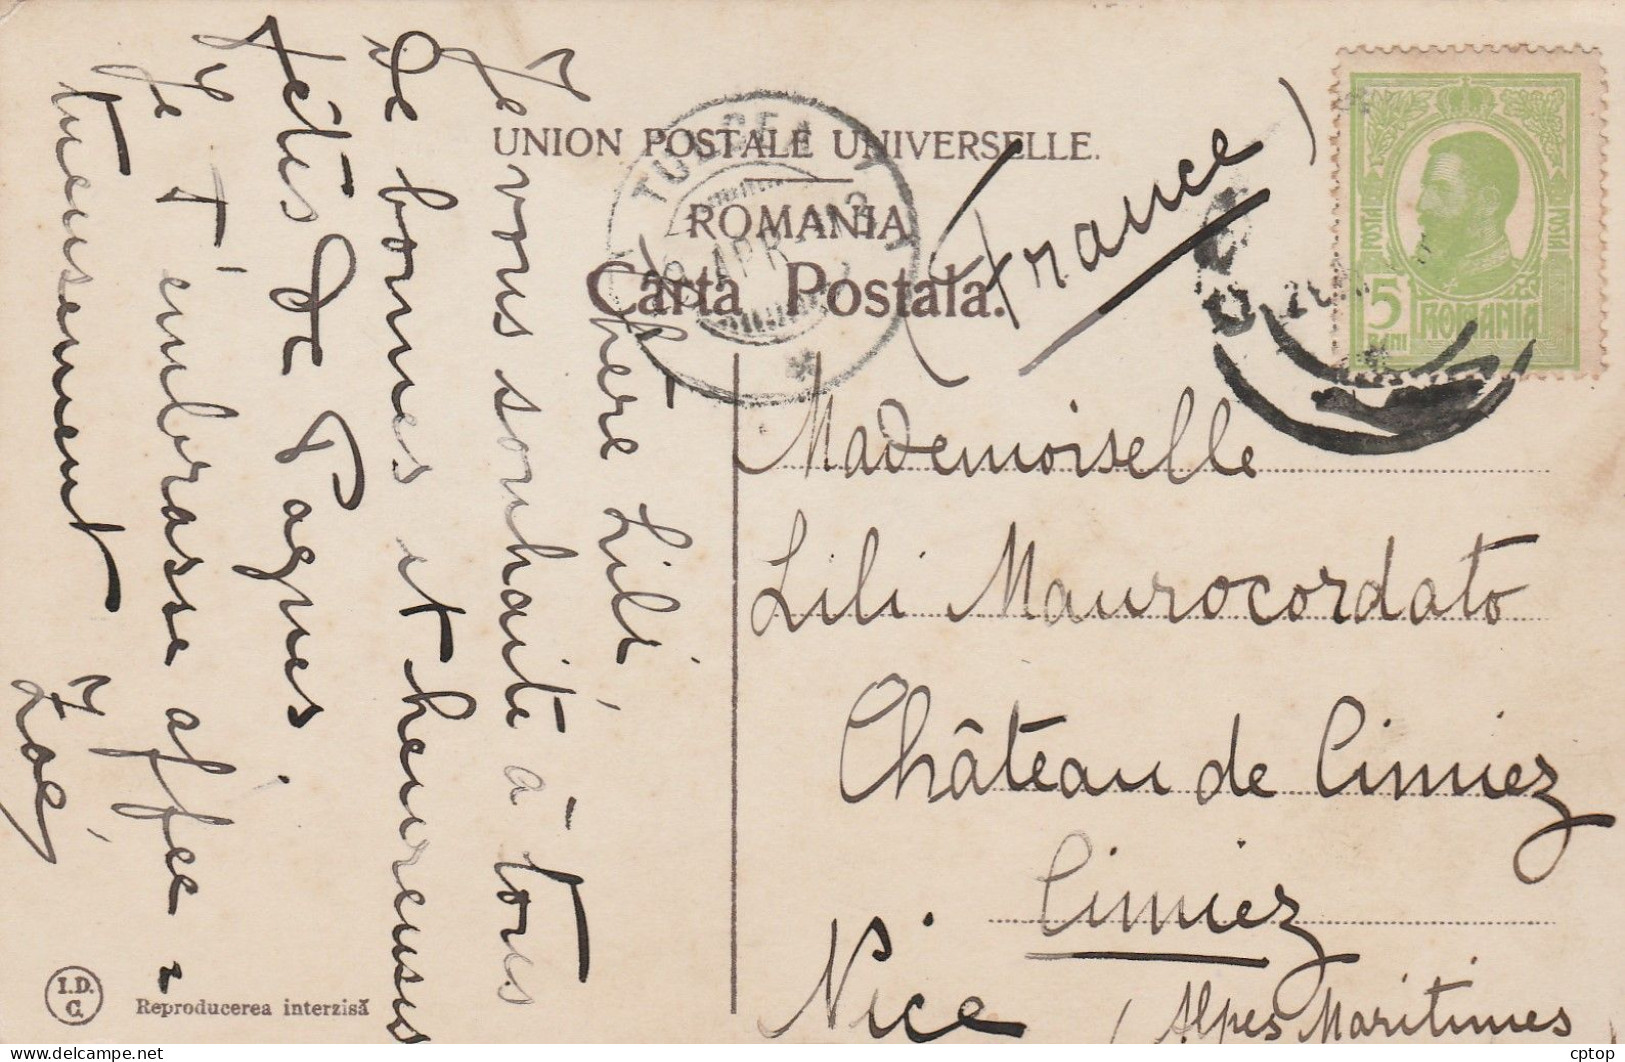 UNION POSTALE UNIVERSELLE.
ROMANIA
Carta Postala.
TULCEA
APR
(France)
5
BANI
POSTA
POSTA
ROMANIA
Mademoiselle
Lili Maurocordato
Château de Cimiez
Cimiez
Nice (Alpes Maritimes
Chère Lili,
Je vous souhaite à tous
de bonnes et heureuses
fêtes de Pagues.
Je t'embrasse affec-
tueusement
Zoé
I.D.
C.
Reproducerea interzisă
cptop